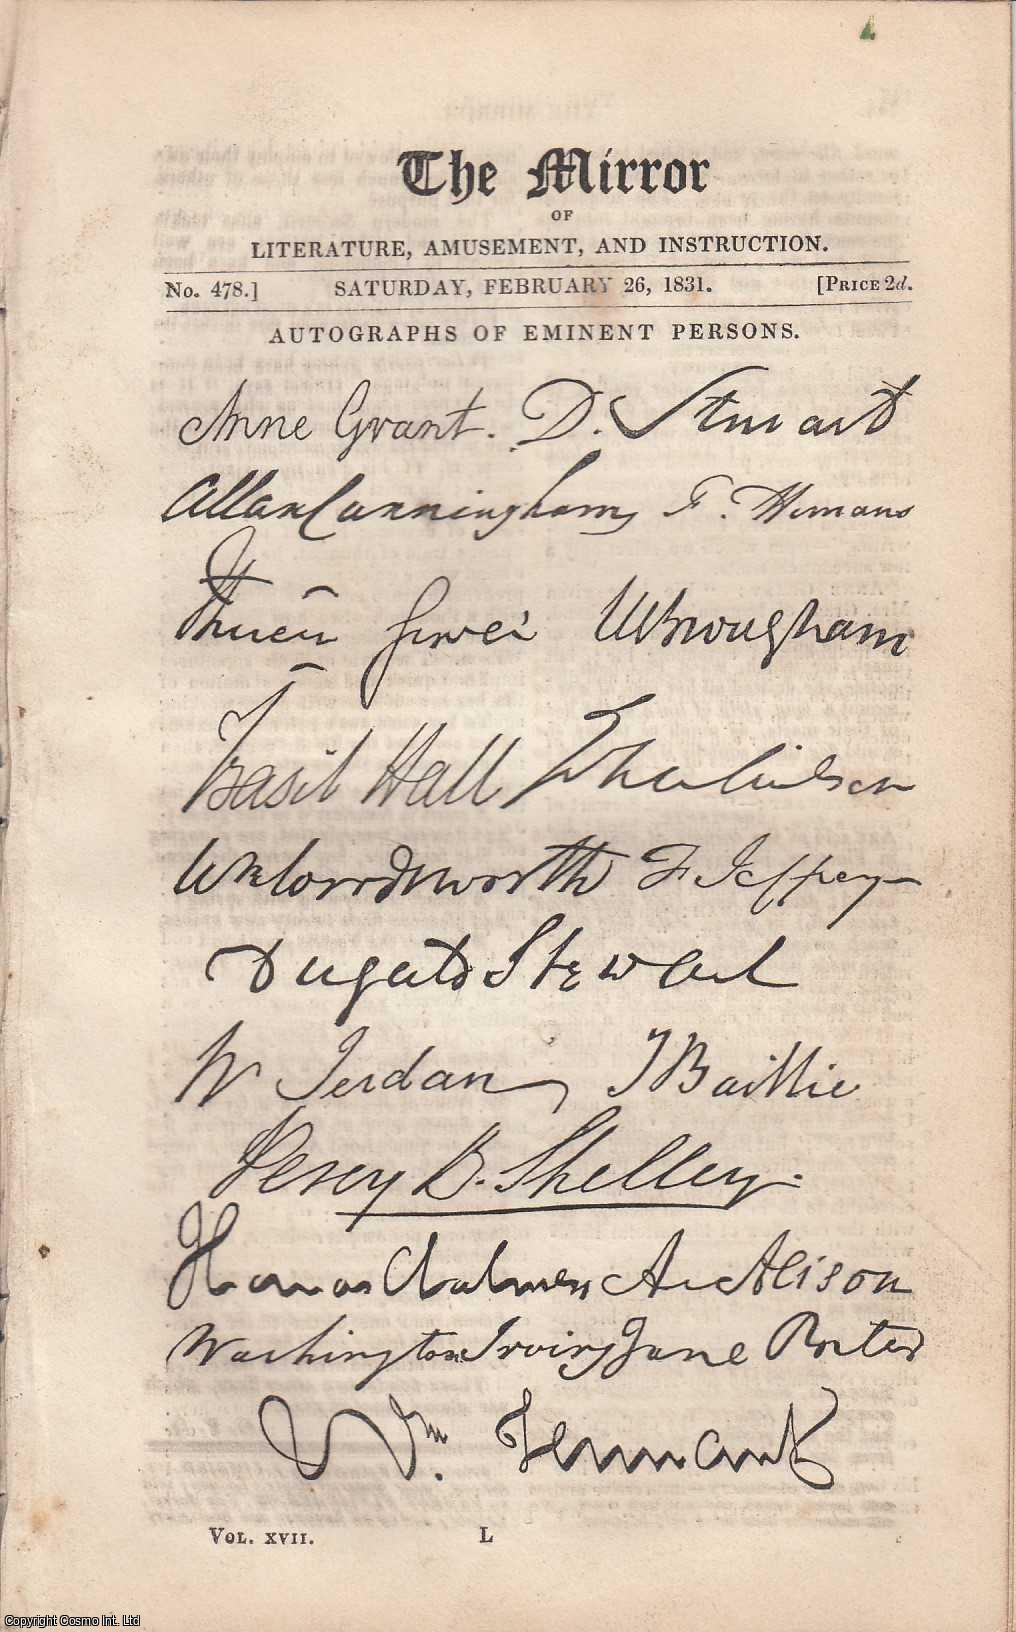 The Mirror
OF
LITERATURE, AMUSEMENT, AND INSTRUCTION.
No. 478.] SATURDAY, FEBRUARY 26, 1831. [PRICE 2d.
AUTOGRAPHS OF EMINENT PERSONS.
Anne Grant. D. Stewart
Allan Cunningham F. Hemans
HBrougham
Basil Hall John Wilson
Wm Wordsworth F. Jeffrey
Dugald Stewart
W Jerdan J Baillie
Percy B. Shelley.
Thomas Chalmers Ar Alison
Washington Irving Jane Porter
Wm. Tennant
VOL. XVII. L
Copyright Cosmo Int. Ltd